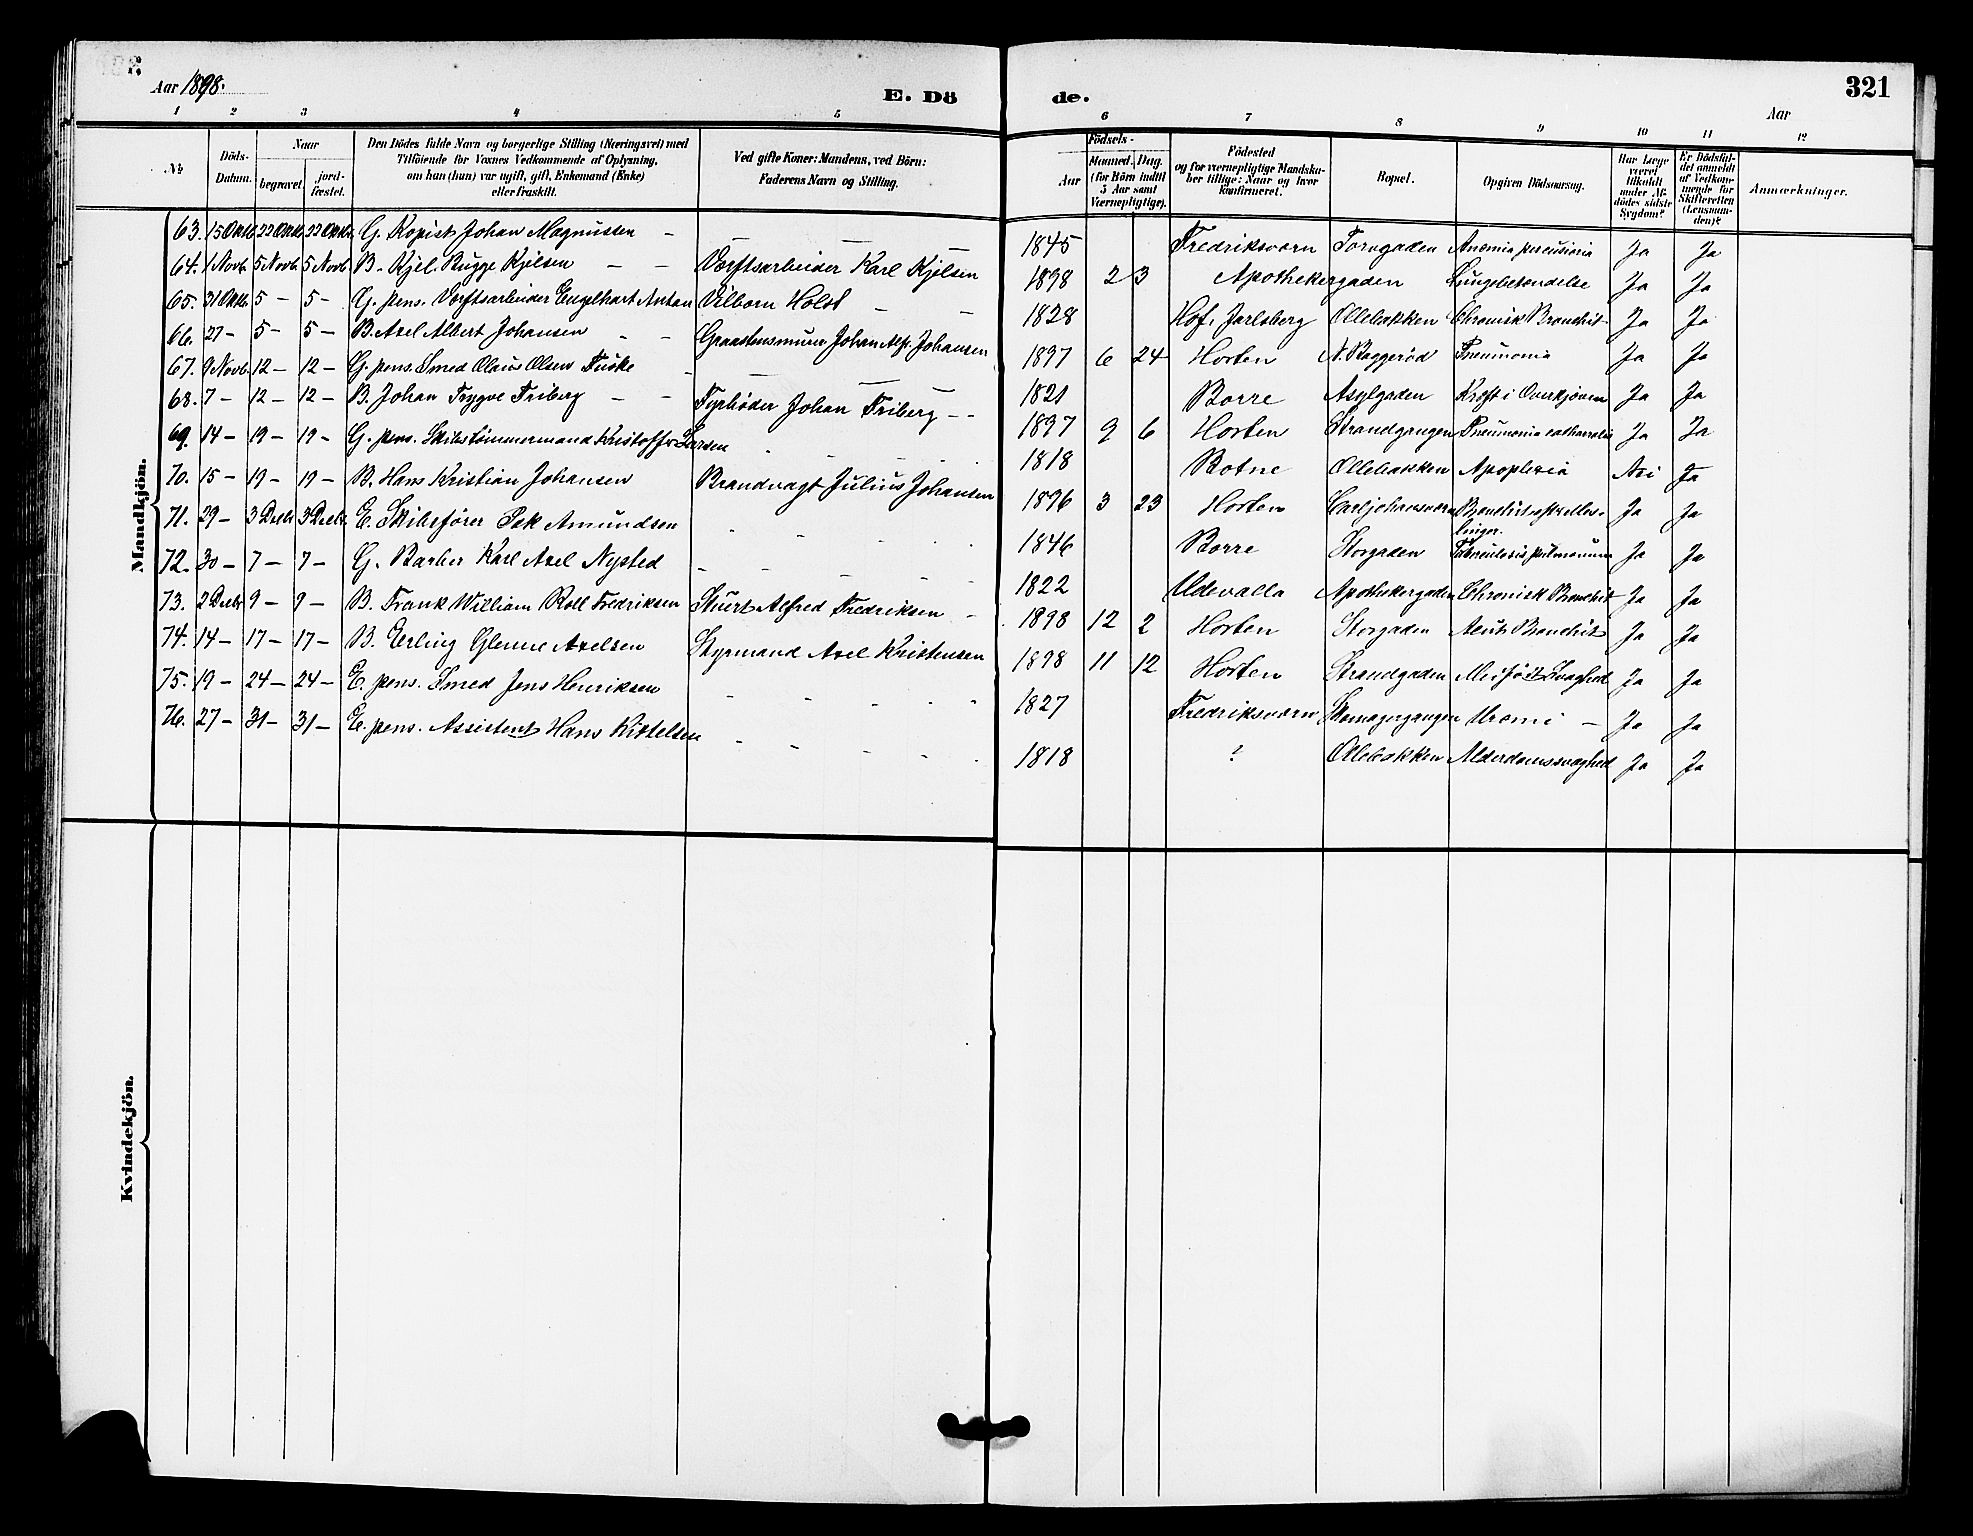 Aar 1898.
E. Dö
de.
321
Aar
1 2 3 4 5 6 7 8 9 10 11 12
No
Döds-Datum.
Naar
begravet.
jord-fæstet.
Den Dödes fulde Navn og borgerlige Stilling (Næringsvei) med
Tilföiende for Voxnes Vedkommende af Oplysning,
om han (hun) var ugift, gift, Enkemand (Enke)
eller fraskilt.
Ved gifte Koner: Mandens, ved Börn:
Faderens Navn og Stilling.
Födsels-
Aar
Maaned. Dag.
(for Börn indtil
5 Aar samt
Værnepligtige).
Födested
og for værnepligtige Mandska-
ber tillige: Naar og hvor
konfirmeret.
Bopæl.
Opgiven Dödsaarsag.
Har Læge
været
tilkaldt
under Af-
dödes sidste
Sygdom?
Er Dödsfal-
det anmeldt
af Vedkom-
mende for
Skifteretten
(Lensman-
den)?
Anmærkninger.
Mandkjön.
63. 15 Oktb 22 Oktb 22 Oktb. G. Kopist Johan Magnussen — — — — 1845 Fredriksværn Torvgaden Anemia perniciosa Ja Ja
64. 1 Novb. 5 Novb. 5 Novb. B. Kjel. Rugge Kjelsen — — Værftsarbeider Karl Kjelsen 1898 2 3 Apothekergaden Lungebetendelse Ja Ja
65. 31 Oktb 5 — 5 — G. pens. Værftsarbeider Engelhart Antan Vilborn Holst — — 1828 Hof, Jarlsberg Ollebakken Chronisk Bronchit. Ja Ja
66. 27 — 5 — 5 — B. Axel Albert Johansen — — Graastensmurer Johan Alf. Johansen 1897 6 24 Horten N. Baggerød Pneumonia Ja Ja
67. 9 Novb. 12 — 12 — G. pens. Smed Olaus Olsen Fuske — — — 1821 Borre Asylgaden Kræft i Overkjæven Ja Ja
68. 7 — 12 — 12 — B. Johan Trygve Friberg — — Fyrbøder Johan Friberg — — 1897 9 6 Horten Strandgangen Pneumonia catharralis Ja Ja
69. 14 — 19 — 19 — G. pens. Skibstømmermand Kristoffer Larsen 1818 Botne Ollebakken Apoplexia Nei Ja
70. 15 — 19 — 19 — B. Hans Kristian Johansen Brandvagt Julius Johansen 1896 3 23 Horten Carljohansværn Ja Ja
71. 29 — 3 Decbr 3 Decbr. E. Skibsfører Amundsen 1846 Borre Storgaden Tuberculosis pulmonum Ja Ja
72. 30 — 7 — 7 — G. Barber Karl Axel Nysted — — — — 1822 Udevalla Apothekergaden Chronisk Bronchit Ja Ja
73. 2 Decbr 9 — 9 — B. Frank William Roll Fredriksen Stuert Alfred Fredriksen — 1898 12 2 Horten Storgaden Acut Bronchit Ja Ja
74. 14 — 17 — 17 — B. Erling Glenne Axelsen Styrmand Axel Kristensen 1898 11 12 Horten Strandgaden Medfödt Svaghed Ja Ja
75. 19 — 24 — 24 — E. pens. Smed Jens Henriksen 1827 Fredriksværn Skomagergangen Uræmi — Ja Ja
76. 27 — 31 — 31 — E. pens. Assistent Hans Kittelsen 1818 ? Ollebakken Alderdomssvaghed Ja Ja
Kvindekjön.